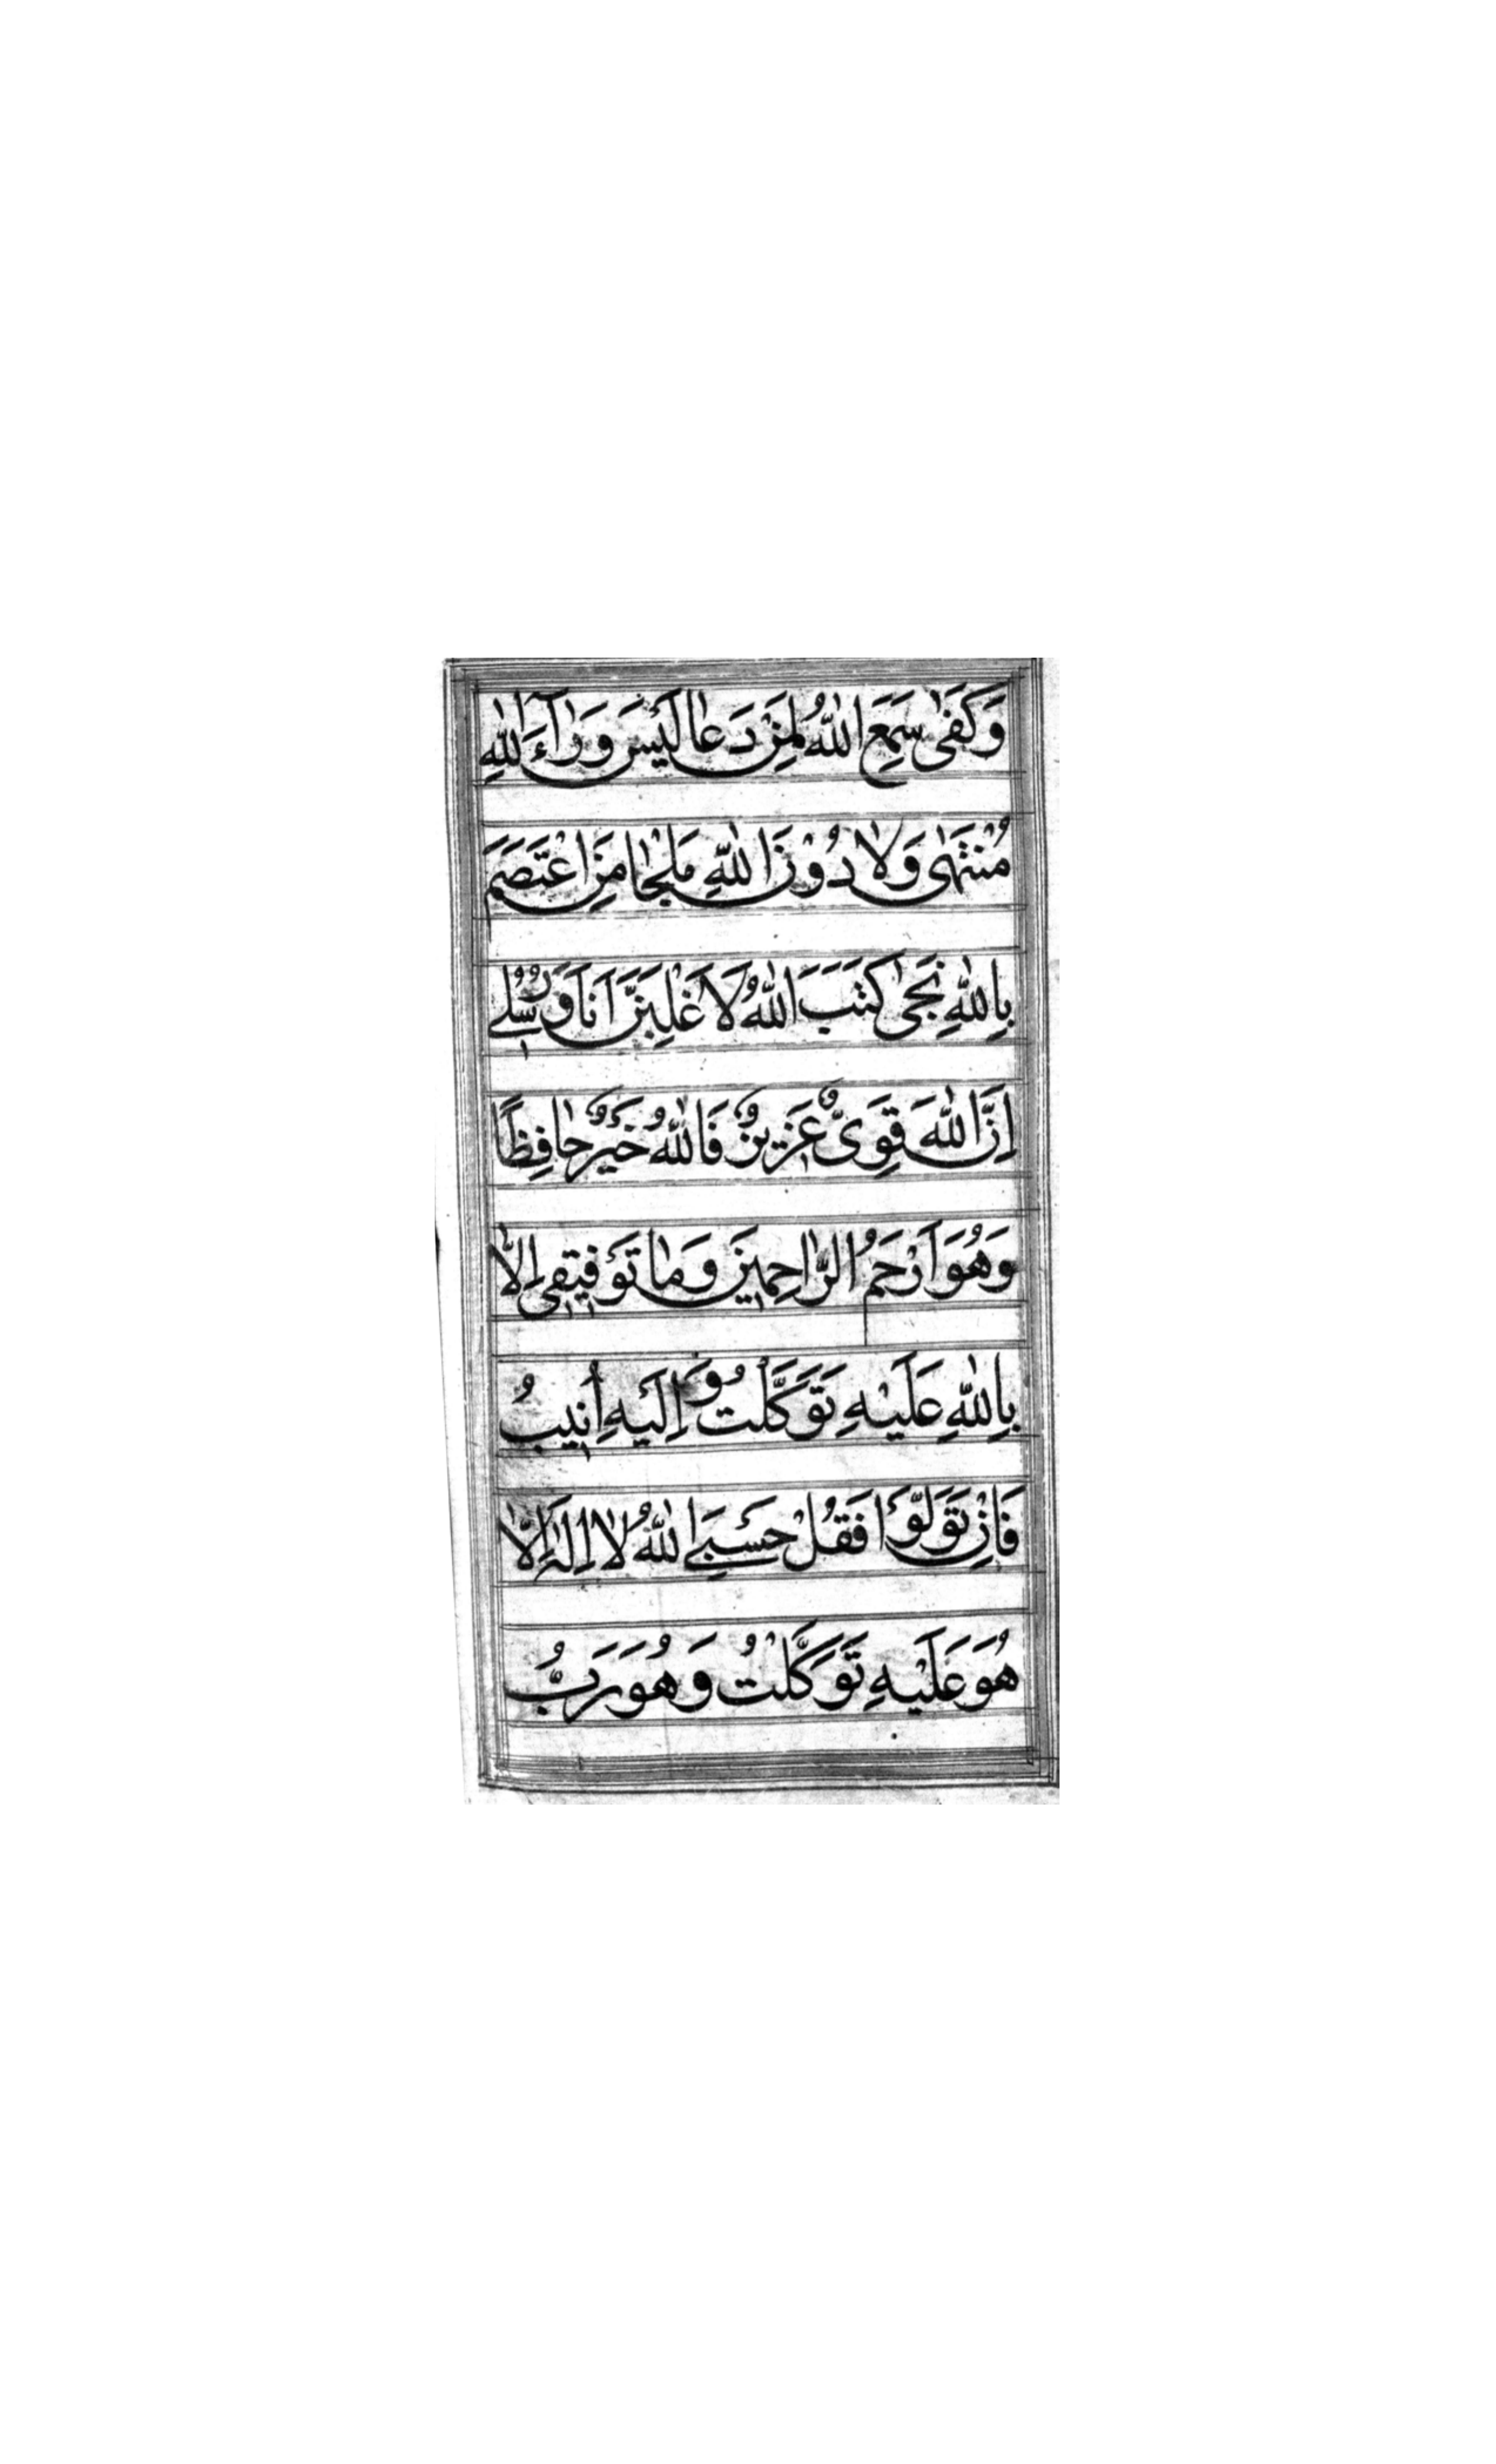 وَكَفٰى سَمِعَ اللّٰهُ لِمَنْ دَعَا لَيْسَ وَرَآءَ اللّٰهِ
مُنْتَهٰى وَلَا دُوْنَ اللّٰهِ مَلْجَا مَنِ اعْتَصَمَ
بِاللّٰهِ نَجٰى كَتَبَ اللّٰهُ لَاَغْلِبَنَّ اَنَا وَرُسُلِے
اِنَّ اللّٰهَ قَوِیٌّ عَزِيزٌ فَاللّٰهُ خَيْرٌ حَافِظًا
وَهُوَ اَرْحَمُ الرَّاحِمِينَ وَمَا تَوْفِيقِى اِلَّا
بِاللّٰهِ عَلَيْهِ تَوَكَّلْتُ وَاِلَيْهِ اُنِيبُ
فَاِنْ تَوَلَّوْا فَقُلْ حَسْبِےَ اللّٰهُ لَا اِلٰهَ اِلَّا
هُوَ عَلَيْهِ تَوَكَّلْتُ وَهُوَ رَبُّ